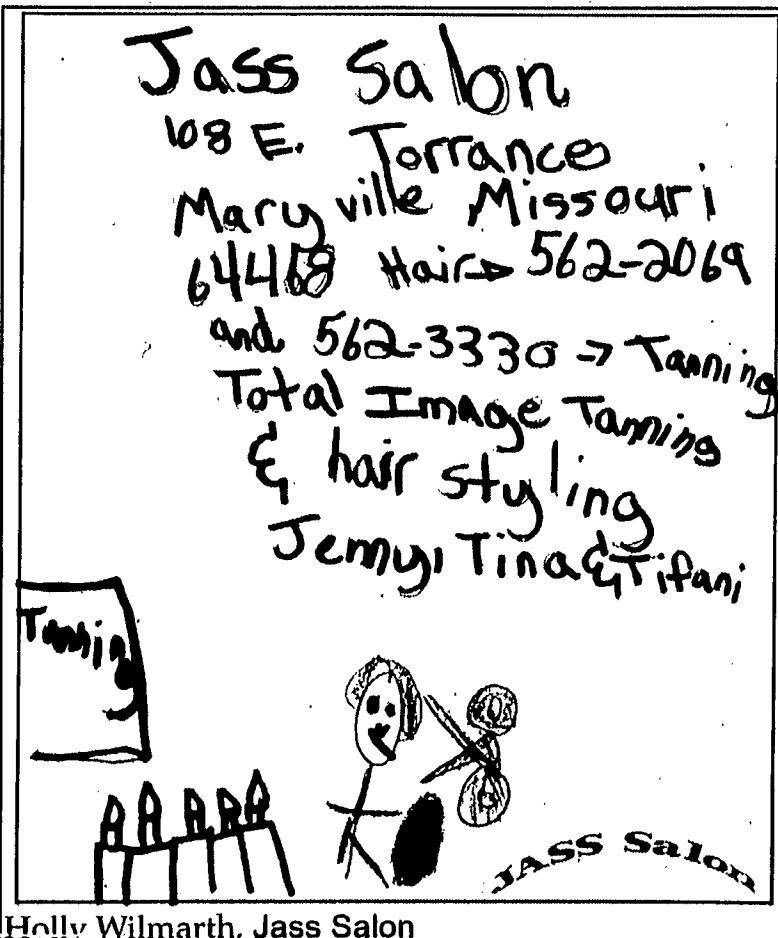 Jass Salon
108 E. Torrance
Maryville Missouri
64468 Hair → 562-2069
and 562-3330 → Tanning
Total Image Tanning
& hair styling
Jenny, Tina & Tifani
Tanning
JASS Salon
Holly Wilmarth, Jass Salon